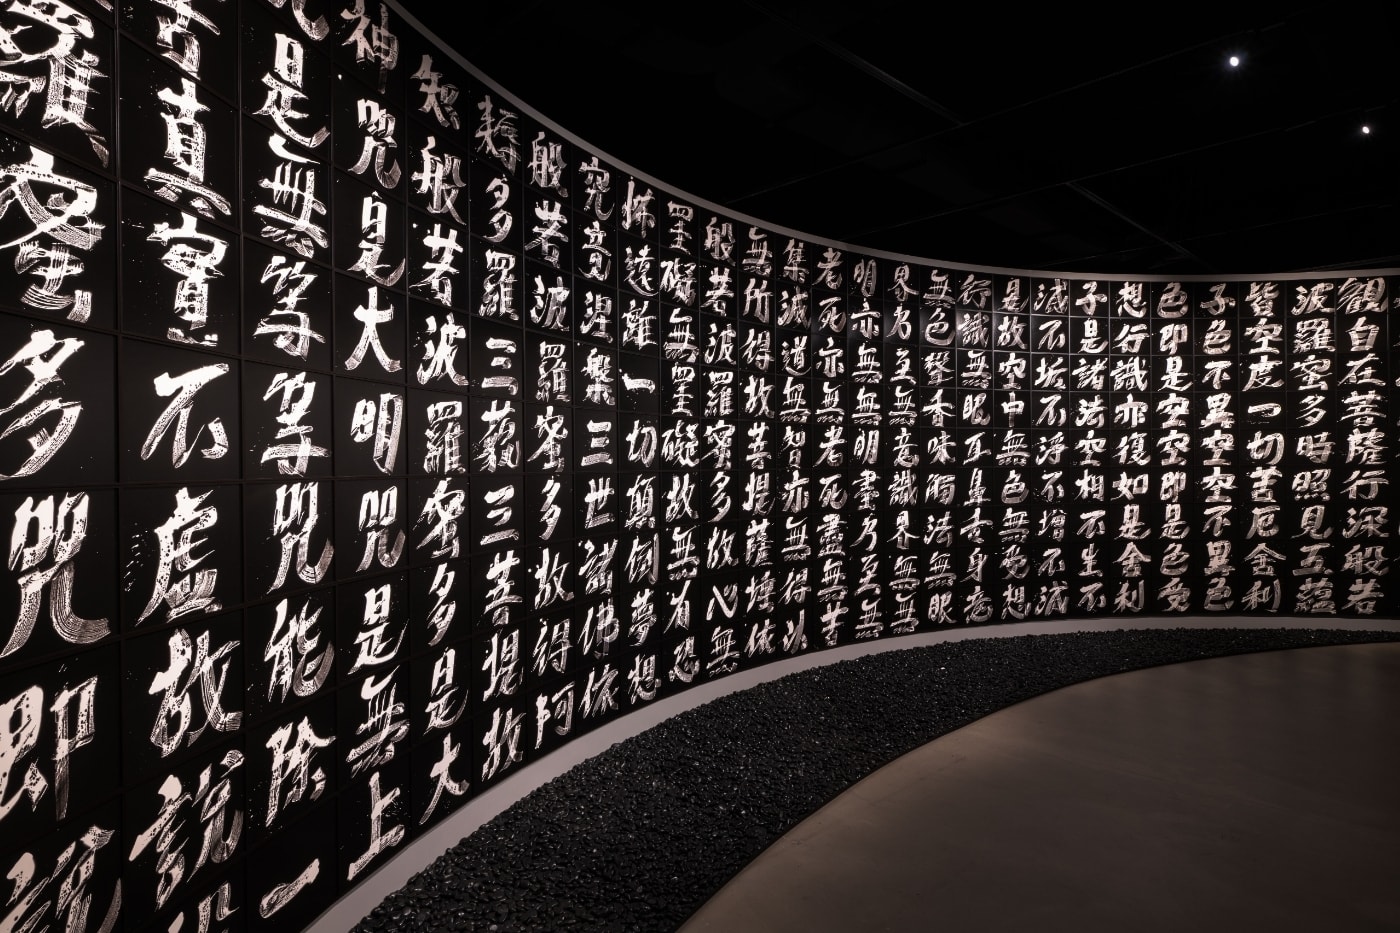 観自在菩薩行深般若
波羅蜜多時照見五蘊
皆空度一切苦厄舎利
子色不異空空不異色
色即是空空即是色受
想行識亦復如是舎利
子是諸法空相不生不
滅不垢不浄不増不減
是故空中無色無受想
行識無眼耳鼻舌身意
無色聲香味觸法無眼
界乃至無意識界無無
明亦無無明盡乃至無
老死亦無老死盡無苦
集滅道無智亦無得以
無所得故菩提薩埵依
般若波羅蜜多故心無
罣礙無罣礙故無有恐
怖遠離一切顛倒夢想
究竟涅槃三世諸佛依
般若波羅蜜多故得阿
耨多羅三藐三菩提故
知般若波羅蜜多是大
神咒是大明咒是無上
咒是無等等咒能除一
苦真實不虛故説般
羅蜜多咒即説